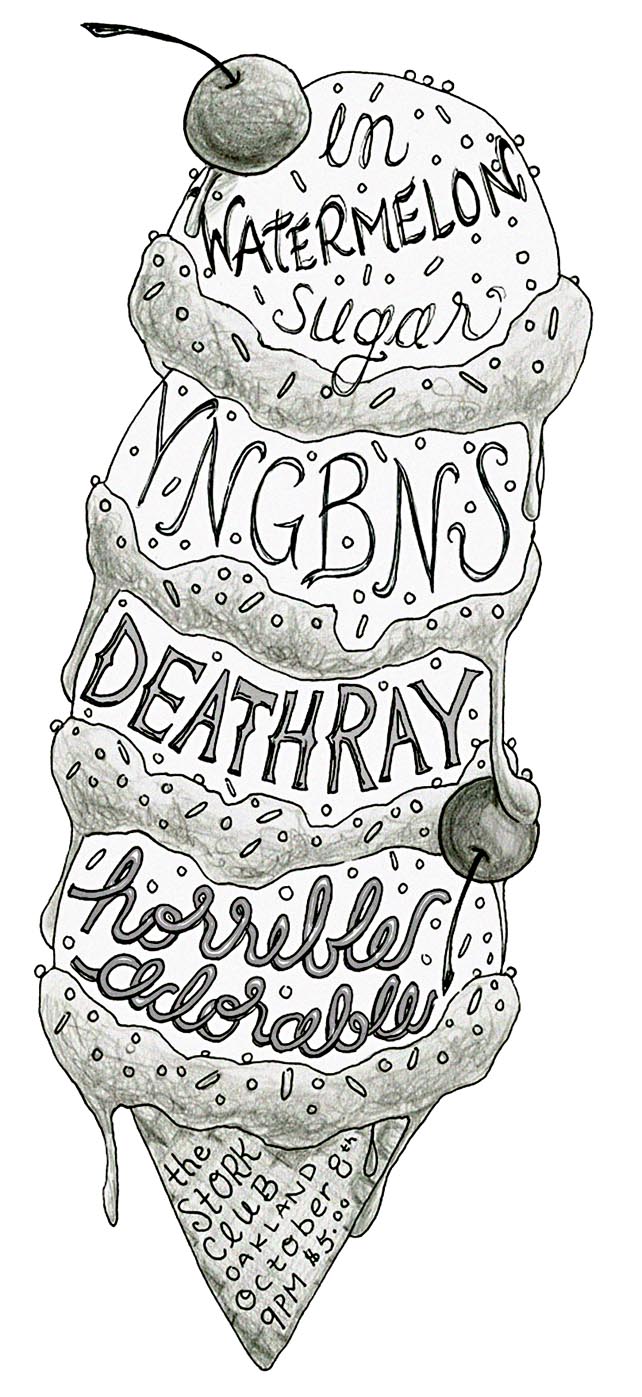 in
WATERMELON
sugar
YNGBNS
DEATHRAY
horrible
adorable
the
STORK
CLUB
OAKLAND
OCTOBER 8th
9PM $5.00